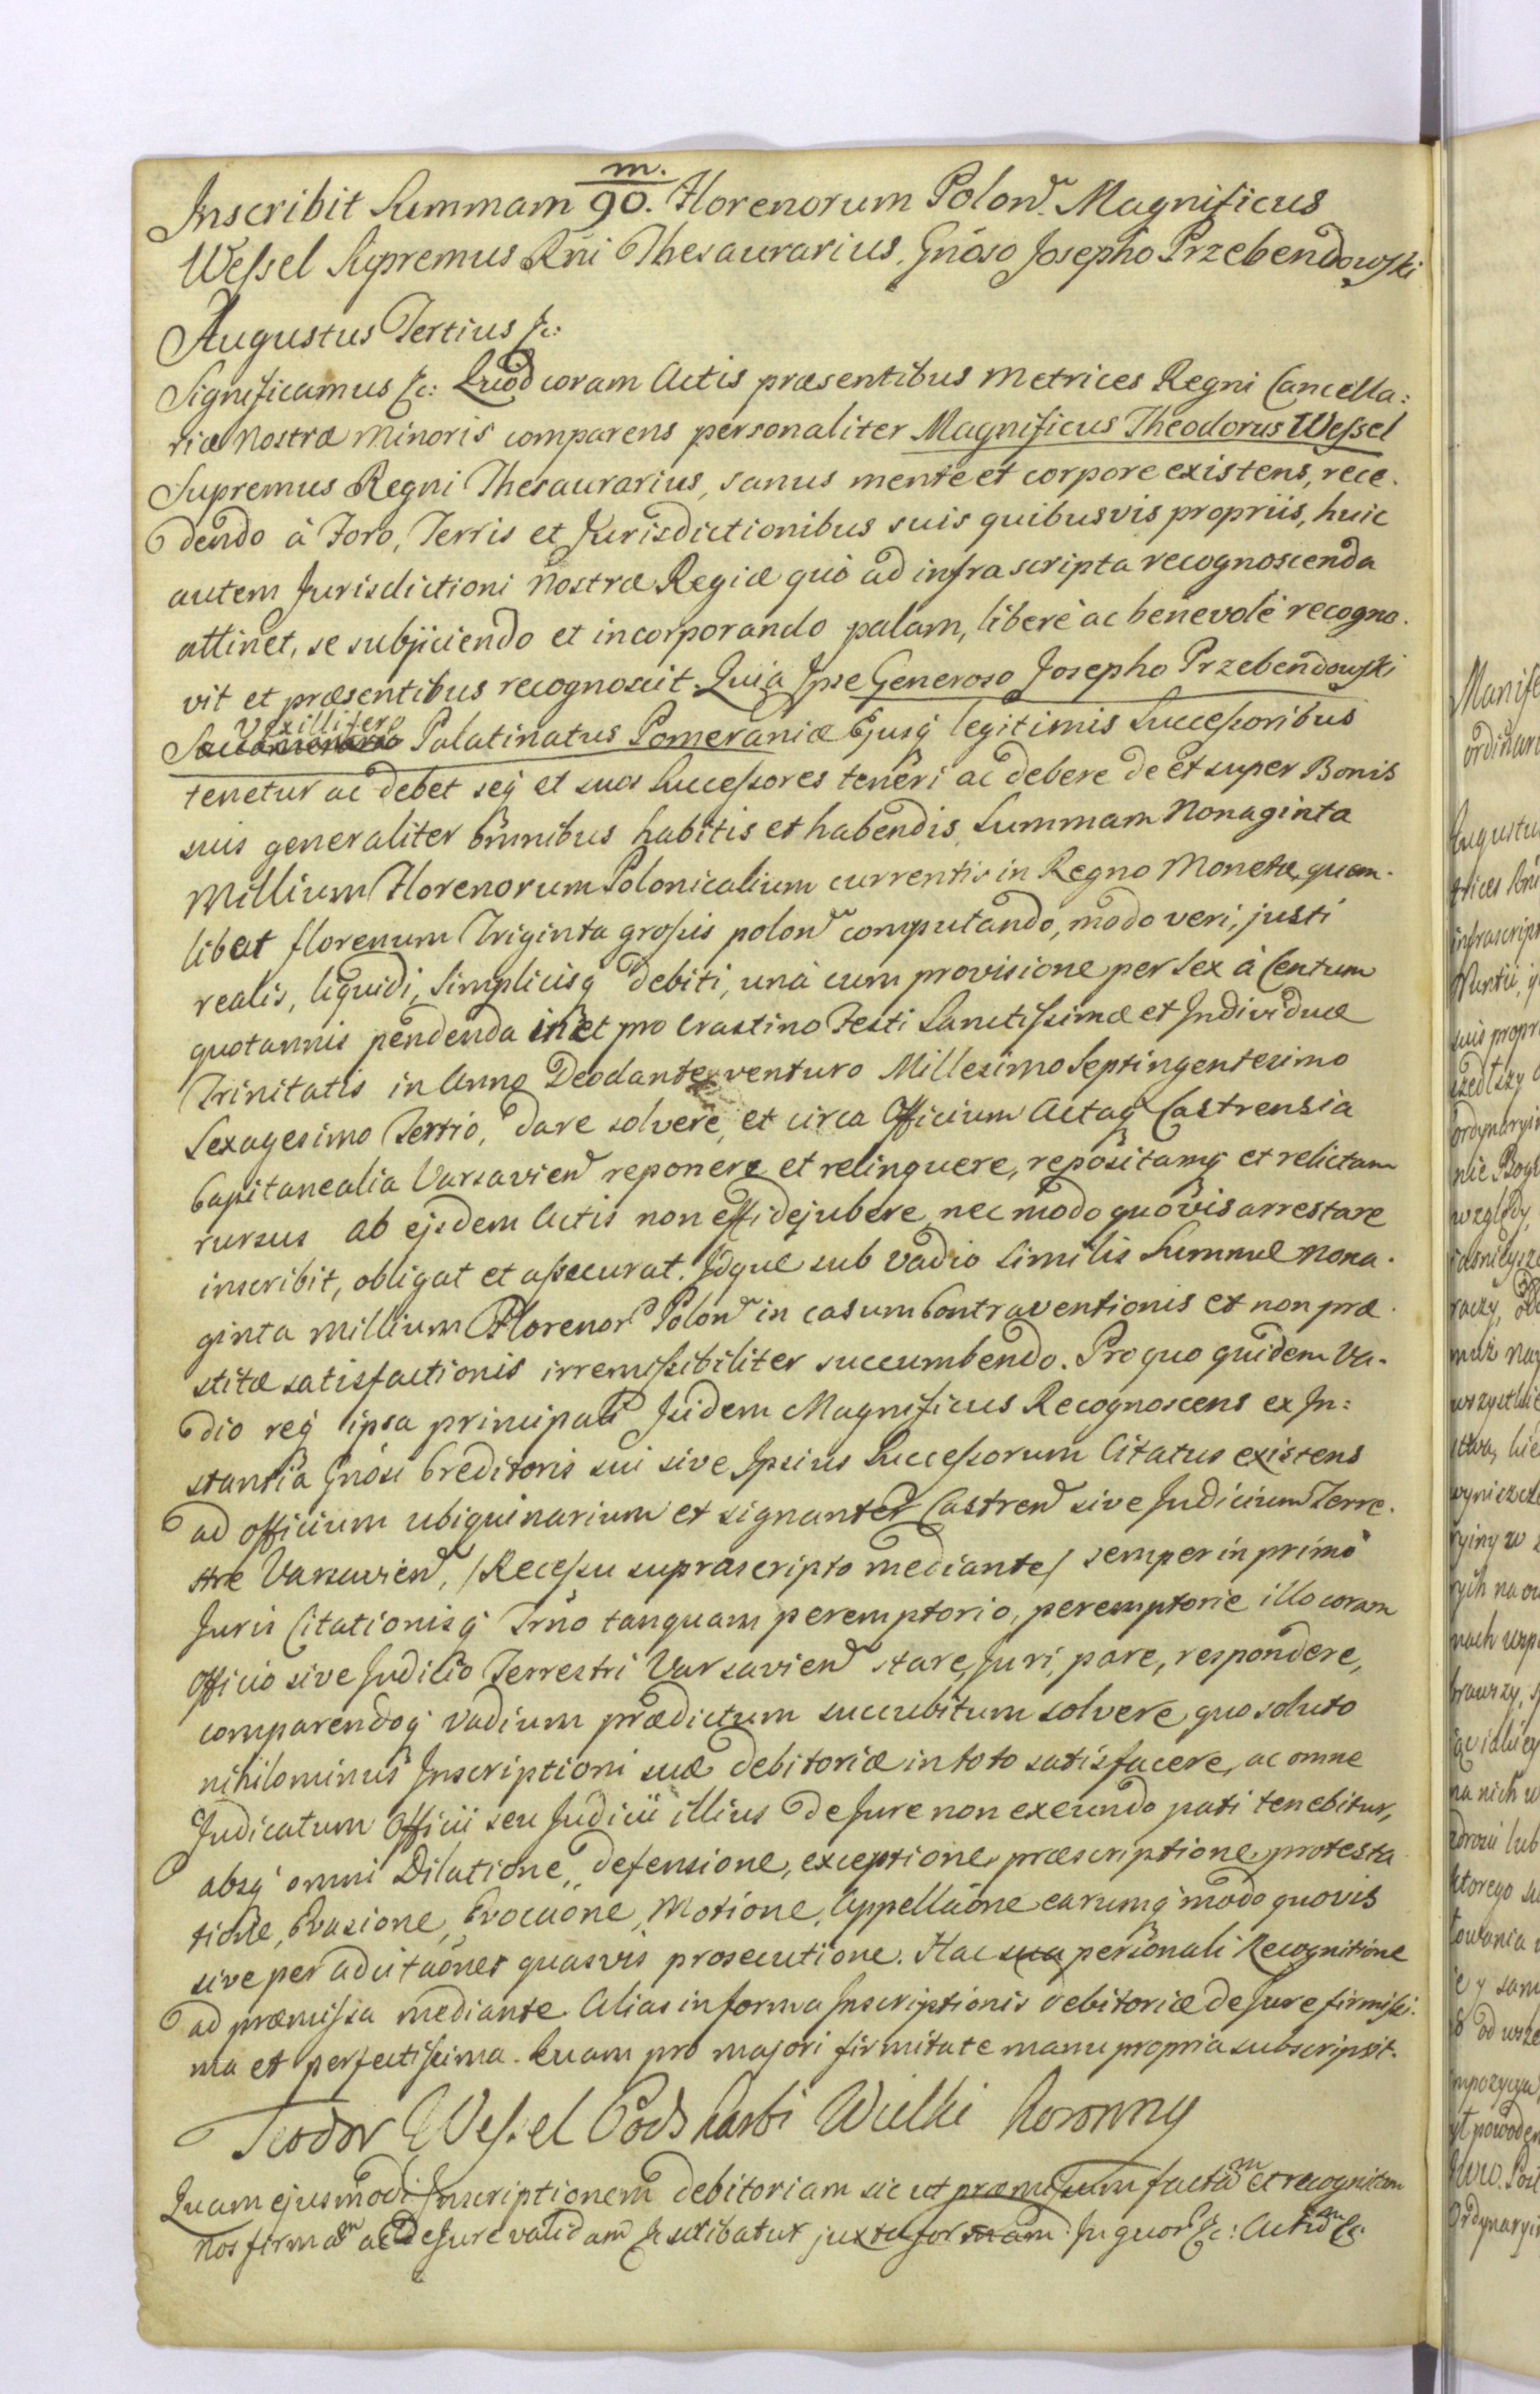 m.
Inscribit Summam 90. Florenorum Polon. Magnificus
Wessel Supremus Rni Thesaurarius, Gnoso Josepho Przebendowski
Augustus Tertius &c:
Significamus &c: Quod coram Actis præsentibus Metrices Regni Cancella:
riæ Nostræ Minoris comparens personaliter Magnificus Theodorus Wessel
Supremus Regni Thesaurarius, sanus mente et corpore existens, rece.
dendo à Foro, Terris et Jurisdictionibus suis quibusvis propriis, huic
autem Jurisdictioni Nostræ Regiæ quò ad infrascripta recognoscenda
attinet, se subjiciendo et incorporando palam, liberè ac benevolè recogno.
vit et præsentibus recognoscit. Quia Ipse Generoso Josepho Przebendowski
Vexillifero
Palatinatus Pomeraniæ Ejusq legitimis Successoribus
tenetur ac debet seq et suos Successores teneri ac debere de et super Bonis
suis generaliter omnibus habitis et habendis, Summam Nonaginta
Millium Florenorum Polonicalium currentis in Regno Monetæ, quem.
libet florenum Triginta grossis polon computando, modo veri, justi
realis, liquidi, Simplicisq debiti, unà cum provisione per Sex à Centum
quotannis pendenda in et pro Crastino Festi Sanctissimæ et Individuæ
Trinitatis in Anno Deodante venturo Millesimo Septingentesimo
Sexagesimo Tertio, dare solvere, et circa Officium Actaq Castrensia
Capitanealia Varsavien reponere et relinquere, repositamq et relictam
rursus ab ejsdem Actis non effidejubere, nec modo quovis arrestare
inscribit, obligat et assecurat. Idque sub vadio similis Summæ Nona.
ginta Millium Florenor Polon in casum Contraventionis et non præ.
stitæ satisfactionis irremissibiliter succumbendo. Pro quo quidem Va.
dio req ipsa principali Jsidem Magnificus Recognoscens ex In:
stantia Gnosi Creditoris sui sive Ipsius Successorum Citatus existens
ad officium ubiquinarium et signanter Castren sive Judicium Terre.
stre Varsavien, /Recessu suprascripto mediante/ semper in primo
Juris Citationisq Trno tanquam peremptorio, peremptorie illo coram
Officio sive Judicio Terrestri Varsavien stare, Juri, pare, respondere,
comparendoq vadium prædictum succubitum solvere, quo soluto
nihilominus Inscriptioni suæ debitoriæ in toto satisfacere, ac omne
Judicatum Officii seu Judicii illius de Jure non exeundo pati tenebitur,
absq omni Dilatione, defensione, exceptione, præscriptione, protesta
tione, Evasione, Evocaone, Motione, Appellaone earumq modo quovis
sive per adcitaones quasvis prosecutione. Hac sua personali Recognitione
ad præmissa mediante. Alias in forma Inscriptionis debitoriæ de Jure firmissi.
ma et perfectissima. Quam pro majori firmitate manu propria subscripsit.
Teodor Wessel Podskarbi Wielki Koronny
Quam ejusmodi Inscriptionem debitoriam sic ut præmissum factam et recognitam
Nos firmam ac de Jure validam &c scribatur juxta formam. In quor &c: Actum &c: